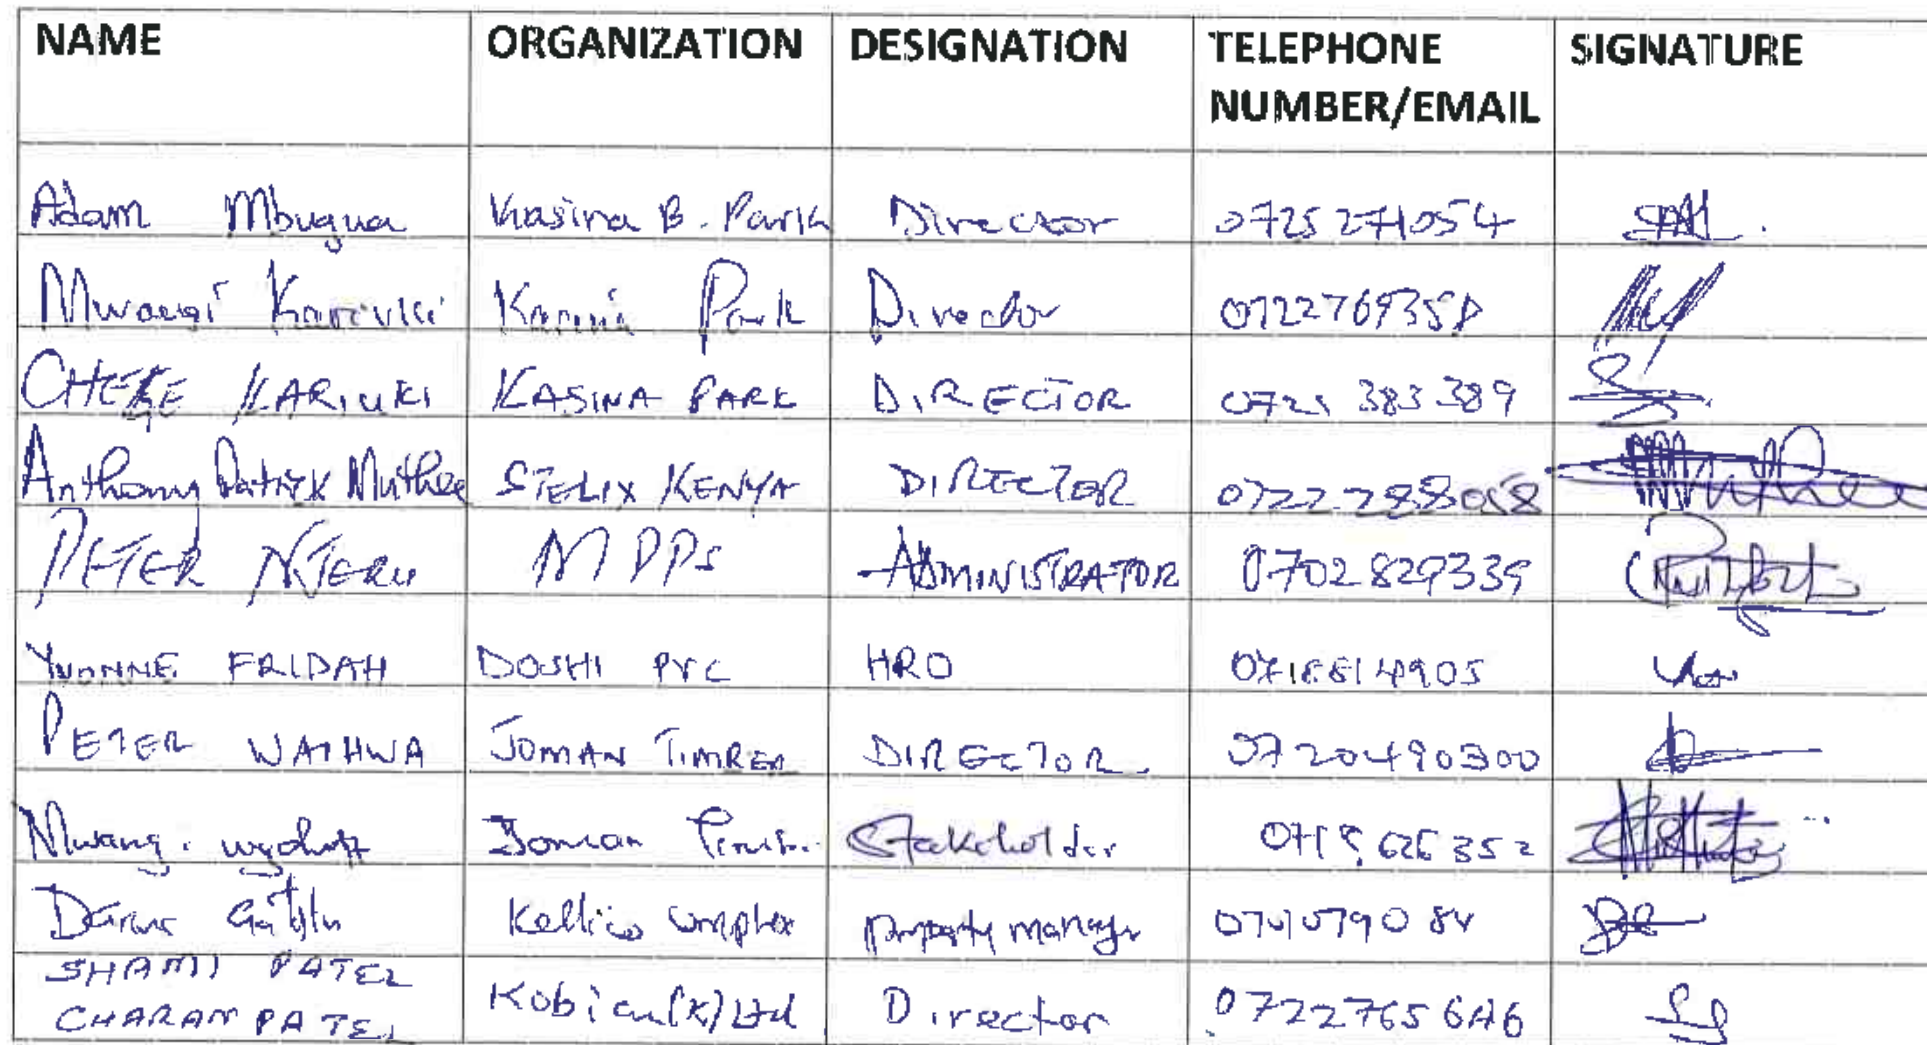 NAME ORGANIZATION DESIGNATION TELEPHONE NUMBER/EMAIL SIGNATURE
Adam Mbugua Kasina B. Park Director 0725271054
Mwangi Kariuki Park Director
CHEGE KARIUKI KASINA PARK DIRECTOR 0721 383 389
Anthony Patrick Muthee STELIX KENYA DIRECTOR 0722288058
PETER NJERU MPPS ADMINISTRATOR 0702829339
YVONNE FRIDAH DOSHI PVC HRO
PETER WATHWA JOMAN TIMBER DIRECTOR. 0720490300
Mwangi Joman Stakeholder
Kellico complex property manager
SHAMI PATEL
CHARAN PATEL Kobian (K) Ltd Director